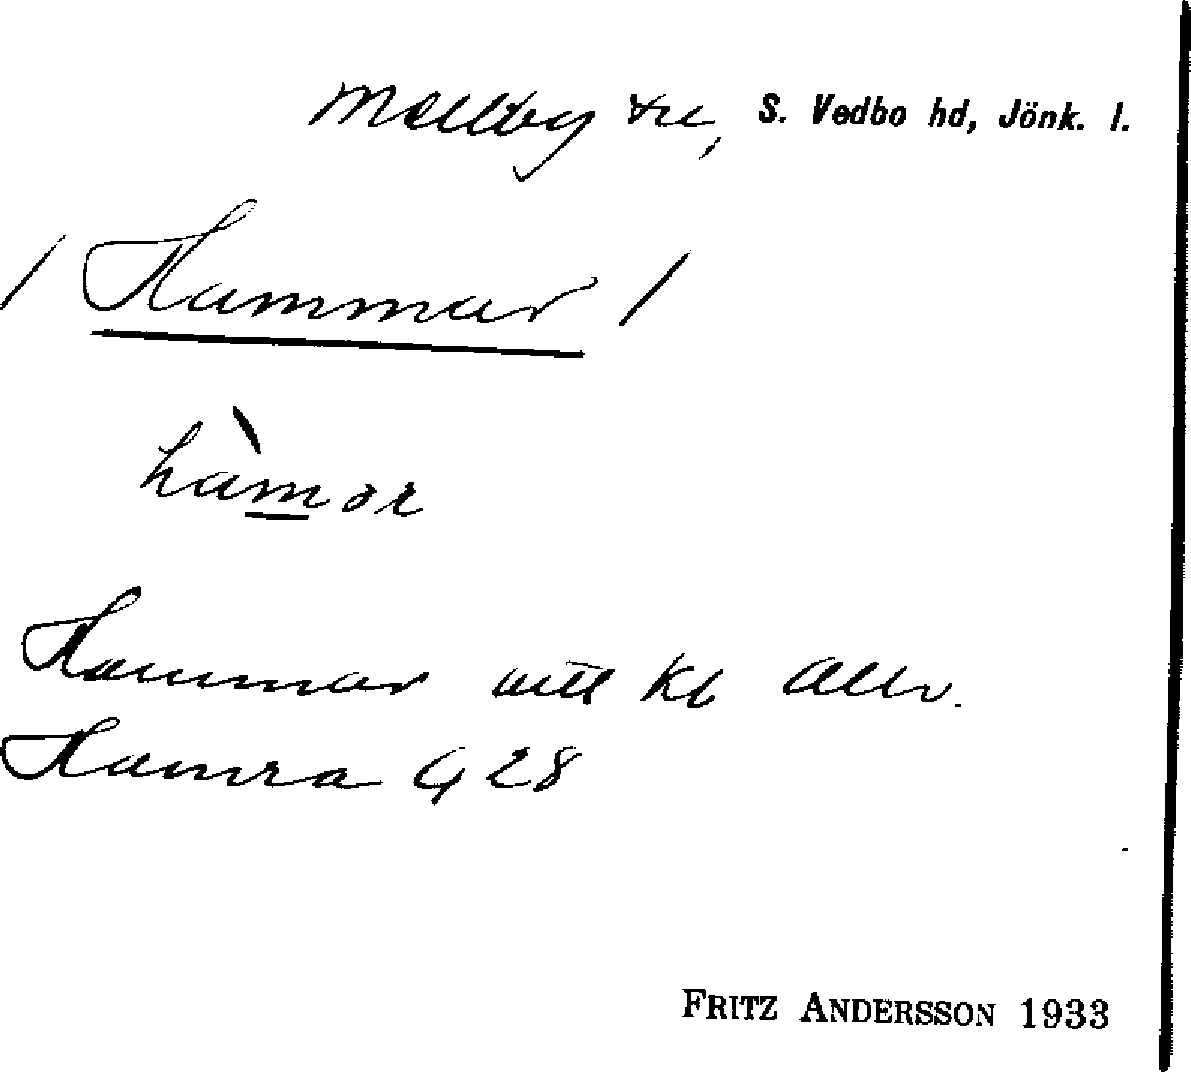 Mellby sn, S. Vedbo hd, Jönk. l.
/ Hammar /
hàmar
Hammar utt Kb Allm.
Hamra G 28
FRITZ ANDERSSON 1933